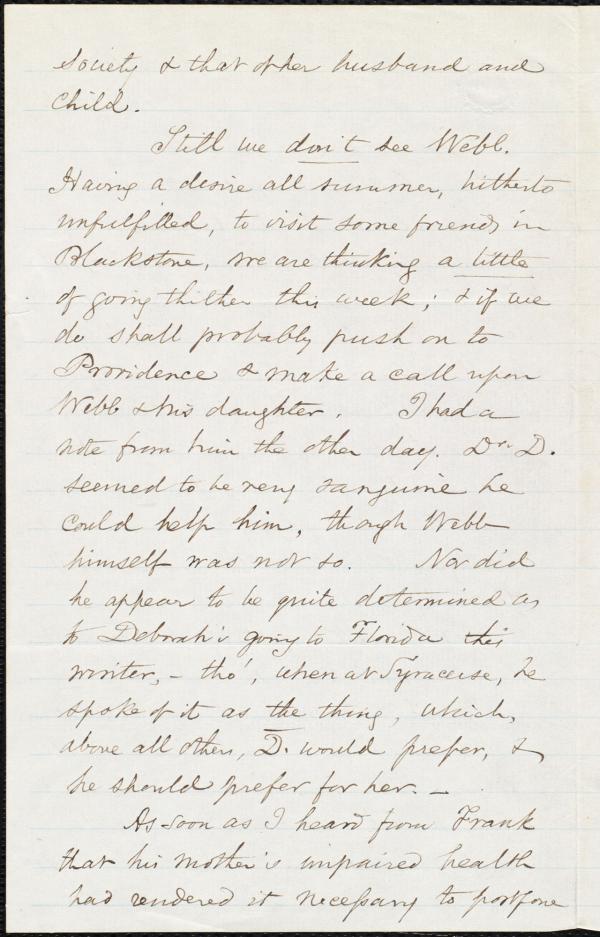 society & that of her husband and
child.
Still we don't see Webb.
Having a desire all summer, hitherto
unfulfilled, to visit some friends in
Blackstone, we are thinking a little
of going thither this week; & if we
do shall probably push on to
Providence & make a call upon
Webb & his daughter. I had a
note from him the other day. Dr. D.
seemed to be very sanguine he
could help him, though Webb
himself was not so. Nor did
he appear to be quite determined as
to Deborah's going to Florida this
winter, - tho', when at Syracuse, he
spoke of it as the thing, which,
above all others, D. would prefer, &
he should prefer for her. -
As soon as I heard from Frank
that his mother's impaired health
had rendered it necessary to postpone